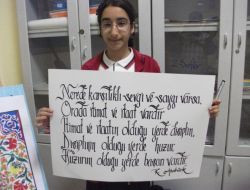 Nerede karşılıklı sevgi ve saygı varsa,
Orada itimat ve itaat vardır.
İtimat ve itaatin olduğu yerde disiplin,
Disiplinin olduğu yerde huzur,
Huzurun olduğu yerde başarı vardır.
K. Atatürk